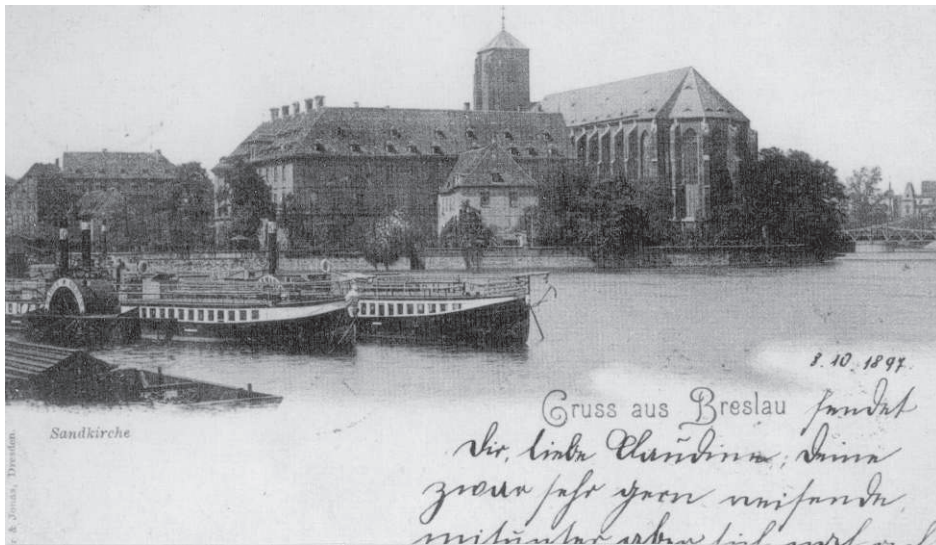 8. 10. 1897
Gruss aus Breslau sendet
Sandkirche
Dir, liebe Claudine, Deine
zwar sehr gern reisende,
mitunter aber sich
& Jonas, Dresden.